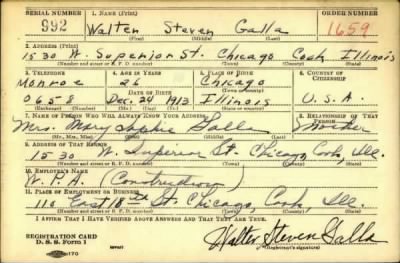 SERIAL NUMBER 992 1. NAME (Print) ORDER NUMBER
Walter Steven Galla 1659
(First) (Middle) (Last)
2. ADDRESS (Print)
1530 W. Superior St. Chicago Cook Illinois
(Number and street or R. F. D. number) (Town) (County) (State)
3. TELEPHONE 4. AGE IN YEARS 5. PLACE OF BIRTH 6. COUNTRY OF CITIZENSHIP
Monroe 26 Chicago
0655 Dec. 24 1913 Illinois U.S.A.
(Exchange) (Number) (Mo.) (Day) (Yr.) (State or country)
7. NAME OF PERSON WHO WILL ALWAYS KNOW YOUR ADDRESS 8. RELATIONSHIP OF THAT PERSON
Mrs. Mary Sophie Galla Mother
(Mr., Mrs., Miss) (First) (Middle) (Last)
9. ADDRESS OF THAT PERSON
1530 W. Superior St. Chicago, Cook, Ill.
(Number and street or R. F. D. number) (Town) (County) (State)
10. EMPLOYER'S NAME
W. P. A. (Construction)
11. PLACE OF EMPLOYMENT OR BUSINESS
110 East 18th St. Chicago, Cook, Ill.
(Number and street or R. F. D. number) (Town) (County) (State)
I AFFIRM THAT I HAVE VERIFIED ABOVE ANSWERS AND THAT THEY ARE TRUE.
REGISTRATION CARD
D. S. S. Form 1
Walter Steven Galla
(Registrant's signature)